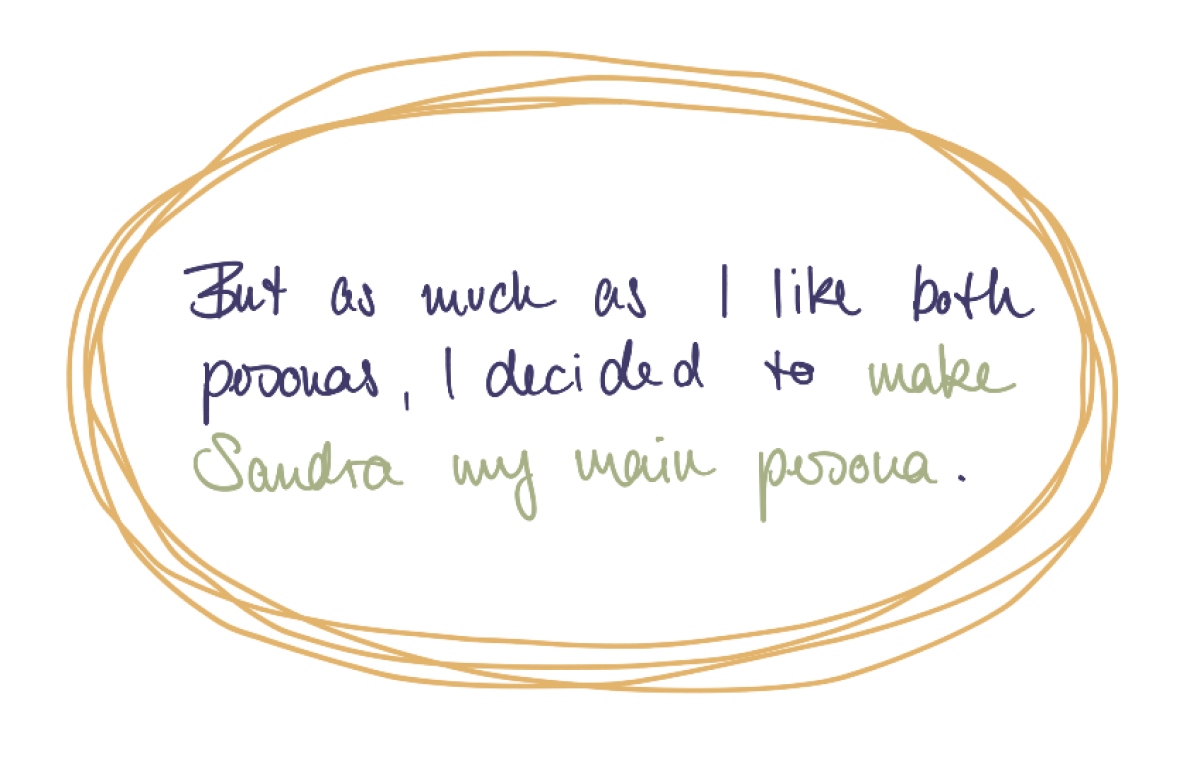 But as much as I like both
personas, I decided to make
Sandra my main persona.